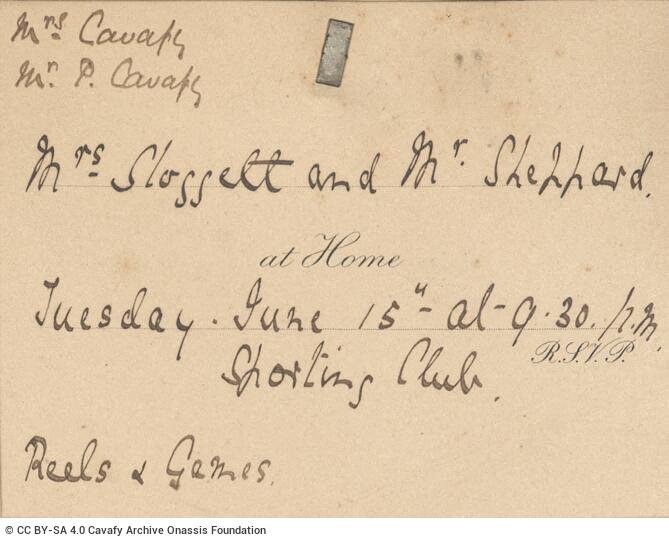 Mrs Cavafy
Mr P. Cavafy
Mrs Sloggett and Mr. Sheppard.
at Home
Tuesday. June 15th at 9.30. p.m.
R.S.V.P.
Sporting Club.
Reels & Games.
© CC BY-SA 4.0 Cavafy Archive Onassis Foundation